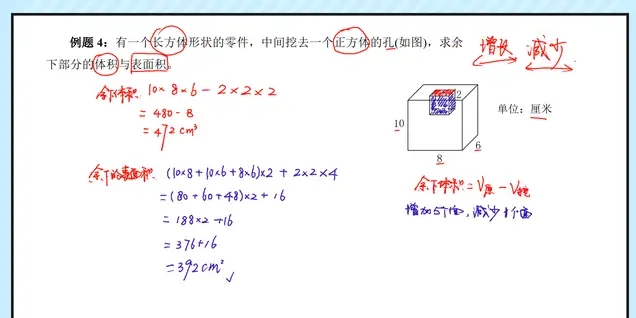 例题 4：有一个长方体形状的零件，中间挖去一个正方体的孔(如图)，求余
下部分的体积与表面积。
增长 减少
余下体积: 10×8×6-2×2×2
=480-8
=472cm³
2
10
8
6
单位：厘米
余下的表面积: (10×8+10×6+8×6)×2+2×2×4
=(80+60+48)×2+16
=188×2+16
=376+16
=392cm²
余下体积=V原-V挖
增加5个面，减少1个面